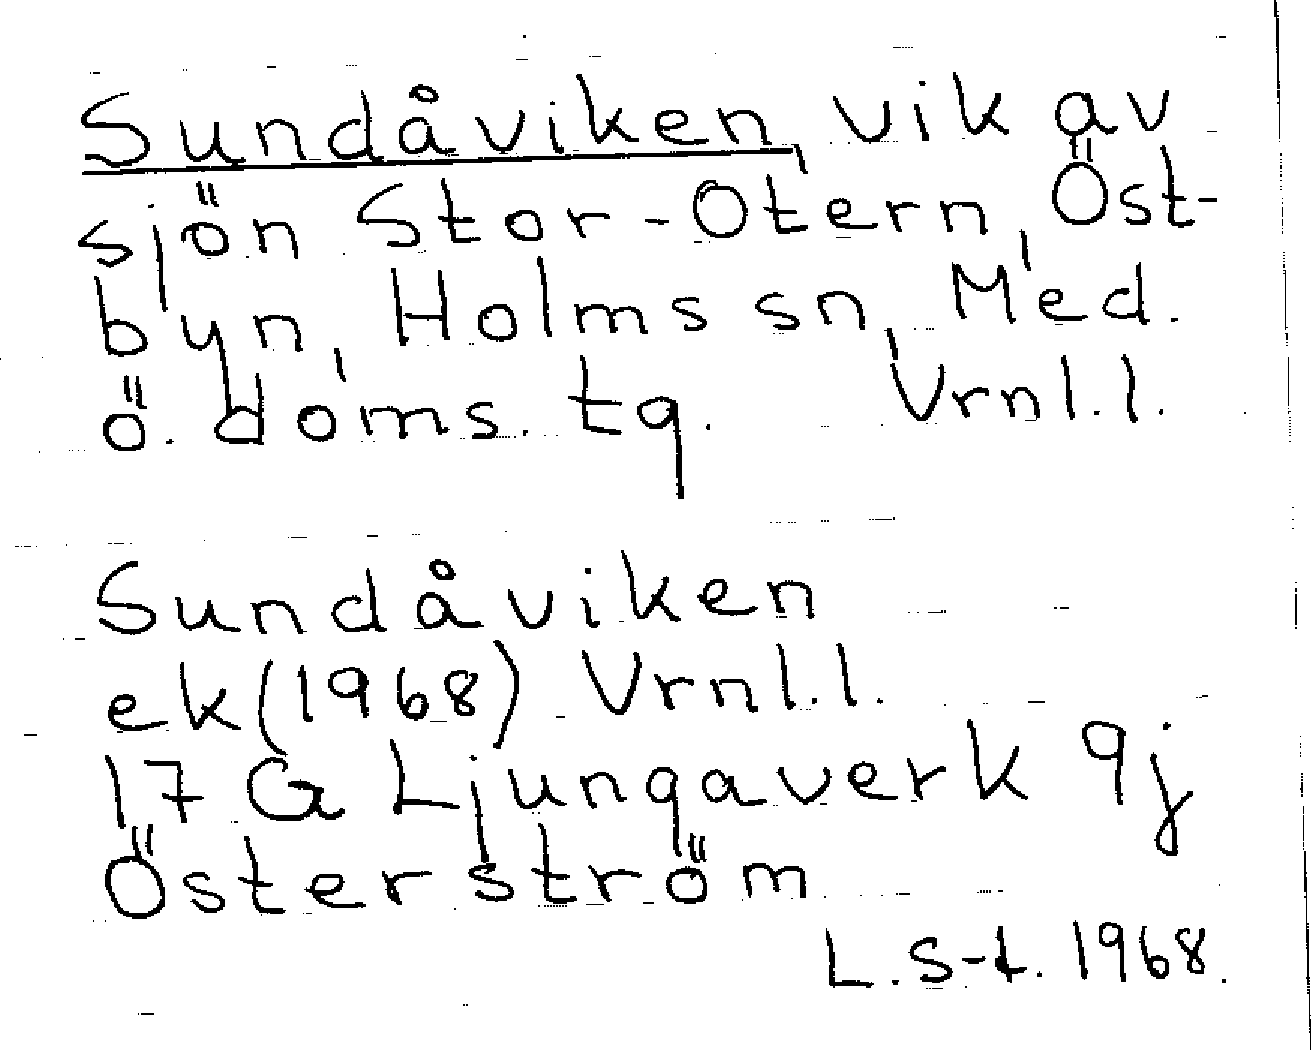 Sundåviken, vik av
sjön Stor-Otern, Öst-
byn, Holms sn, Med.
ö. doms. tg. Vrnl.l.
Sundåviken
ek(1968) Vrnl.l.
17 G Ljungaverk 9j
Österström
L.S-t. 1968.